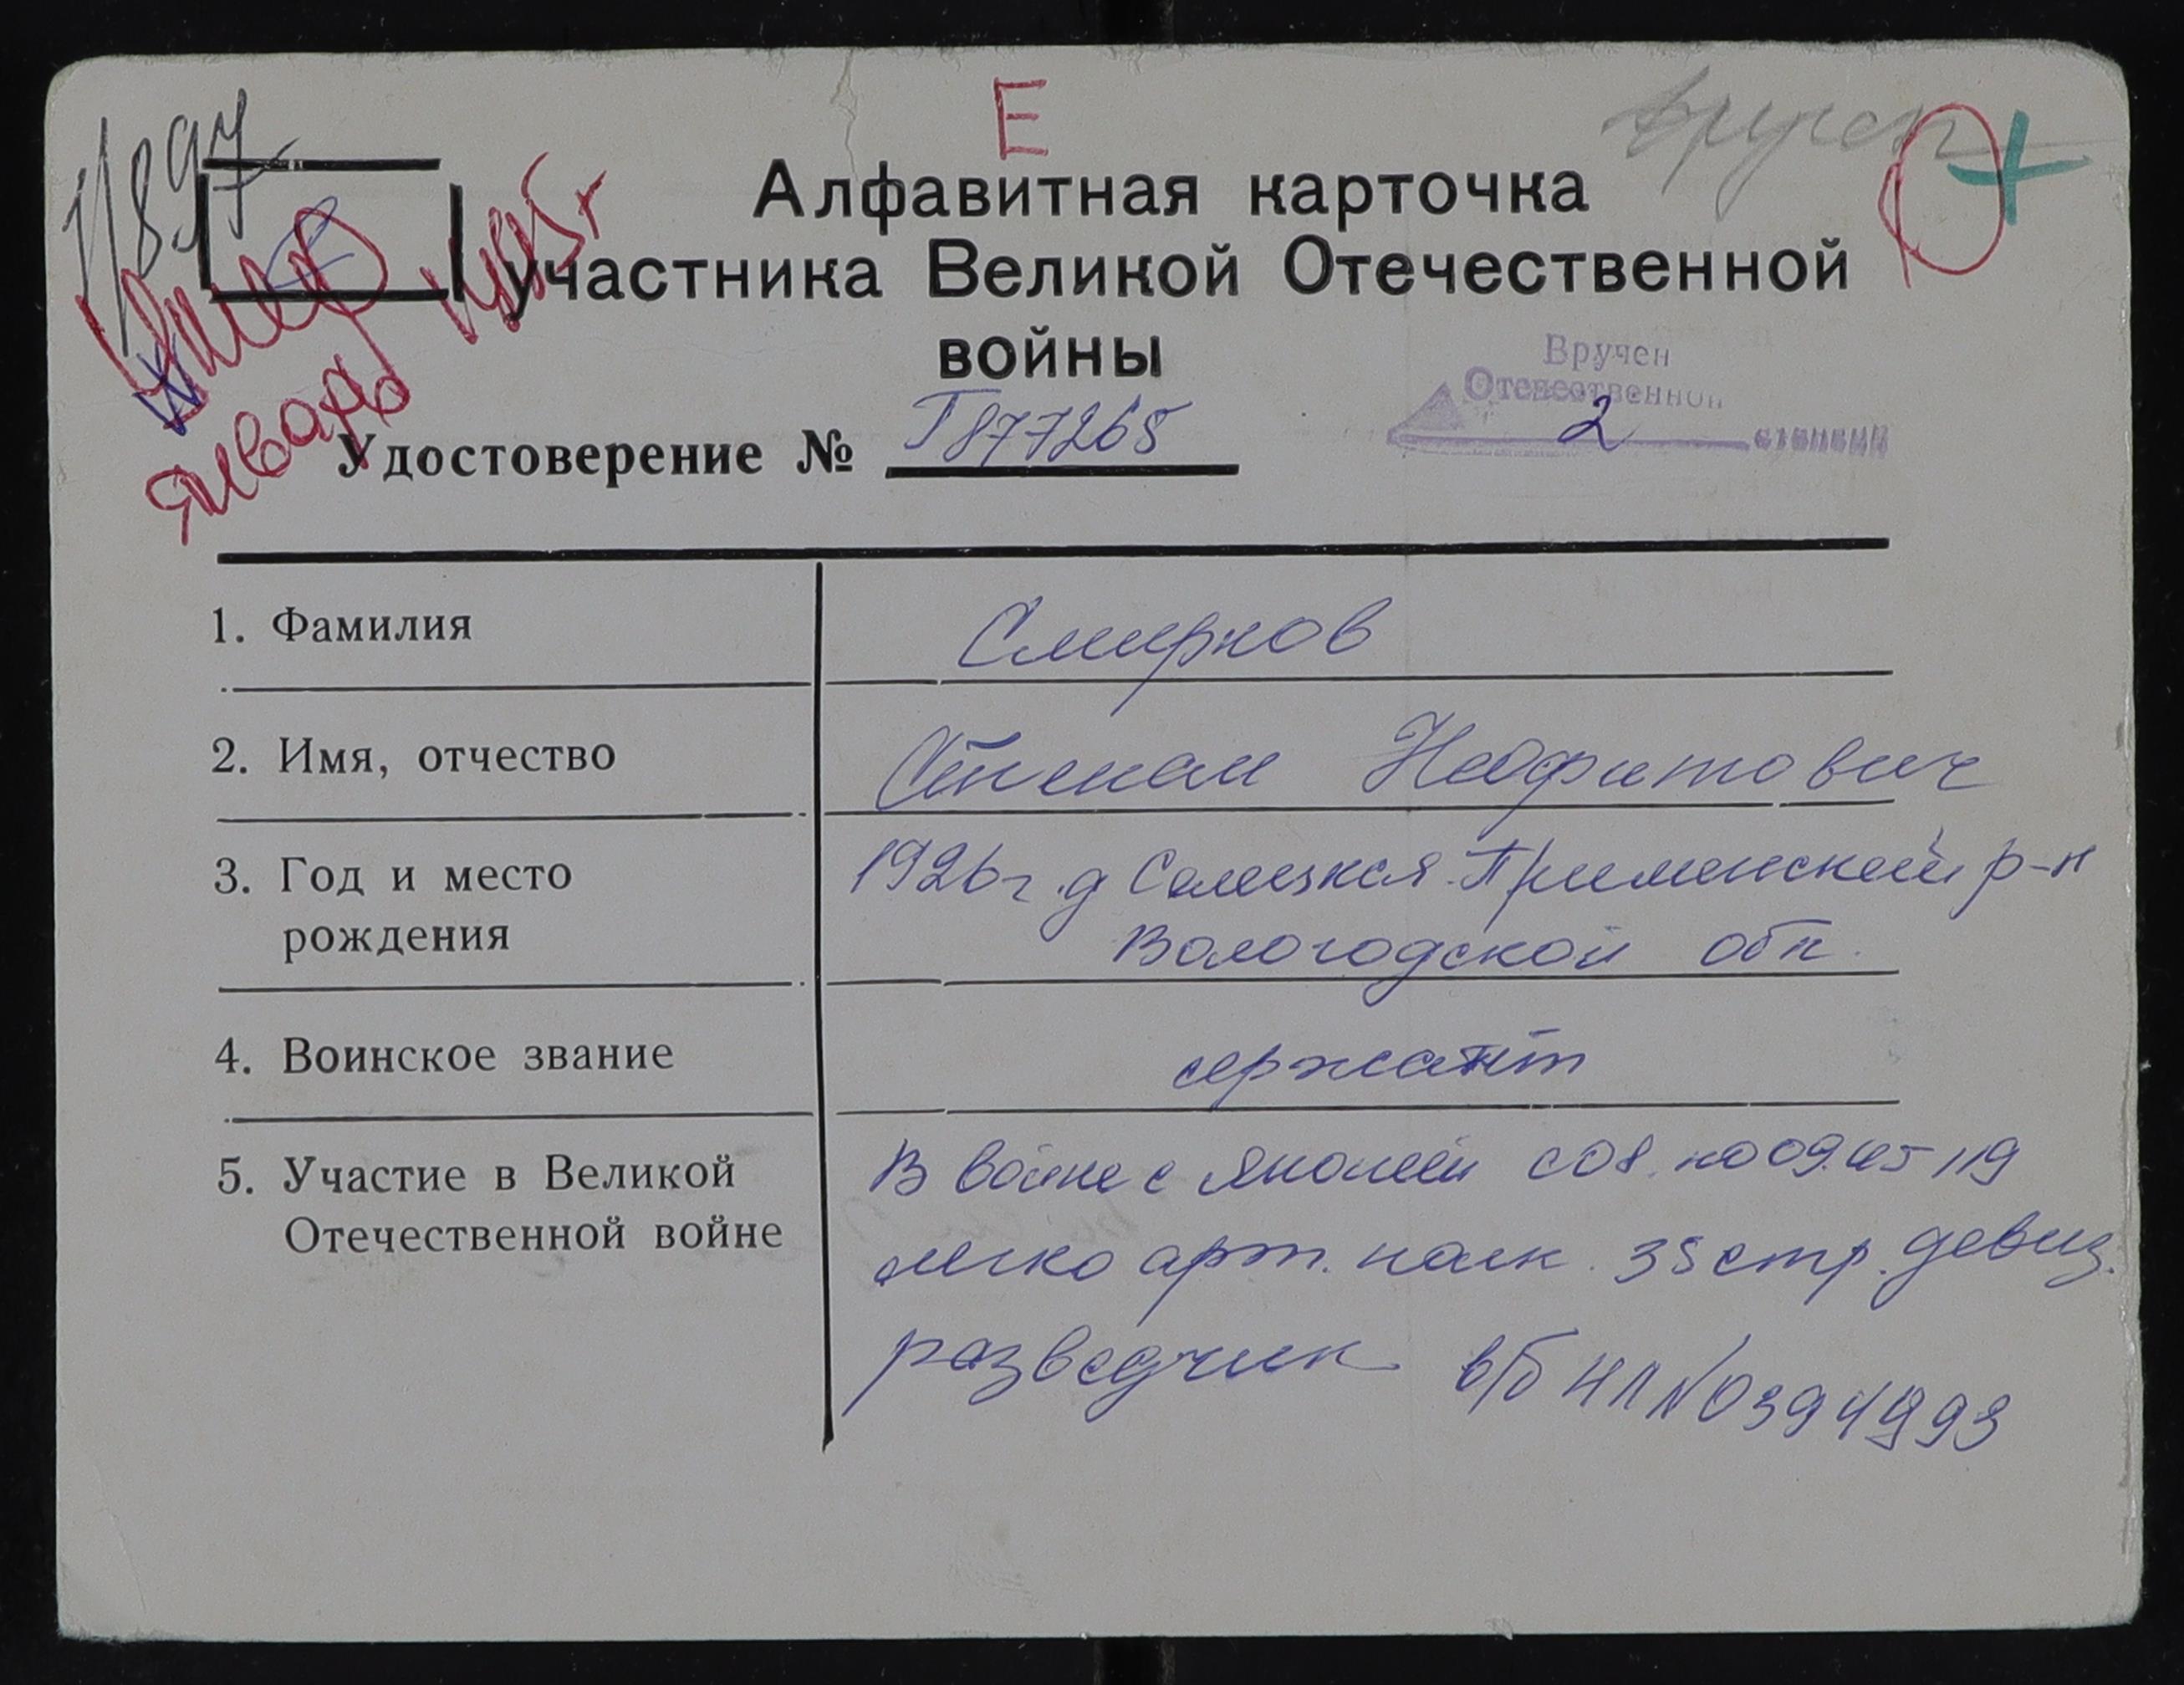 Е
вручен
11897
Умер
январь 1995г
Алфавитная карточка
участника Великой Отечественной
войны
Вручен
Отечественной
2 степени
Удостоверение № Г877265
1. Фамилия Смирнов
2. Имя, отчество Степан Неофитович
3. Год и место 1926г. д Р-н
рождения Вологодской обл.
4. Воинское звание сержант
5. Участие в Великой В войне с Японией с 08. по 09.45 119
Отечественной войне легко арт. полк. 35 стр. дивиз.
разведчик в/б НЛ № 0394993